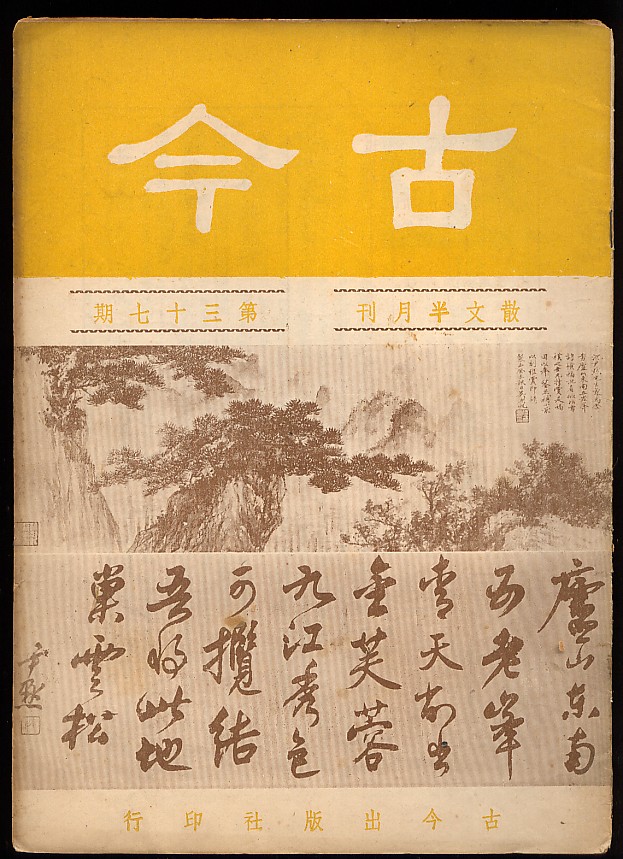 古今
散文半月刊
第三十七期
廬山東南
五老峯
青天削出
金芙蓉
九江秀色
可攬結
吾將此地
巢雲松
尹默
古今出版社印行